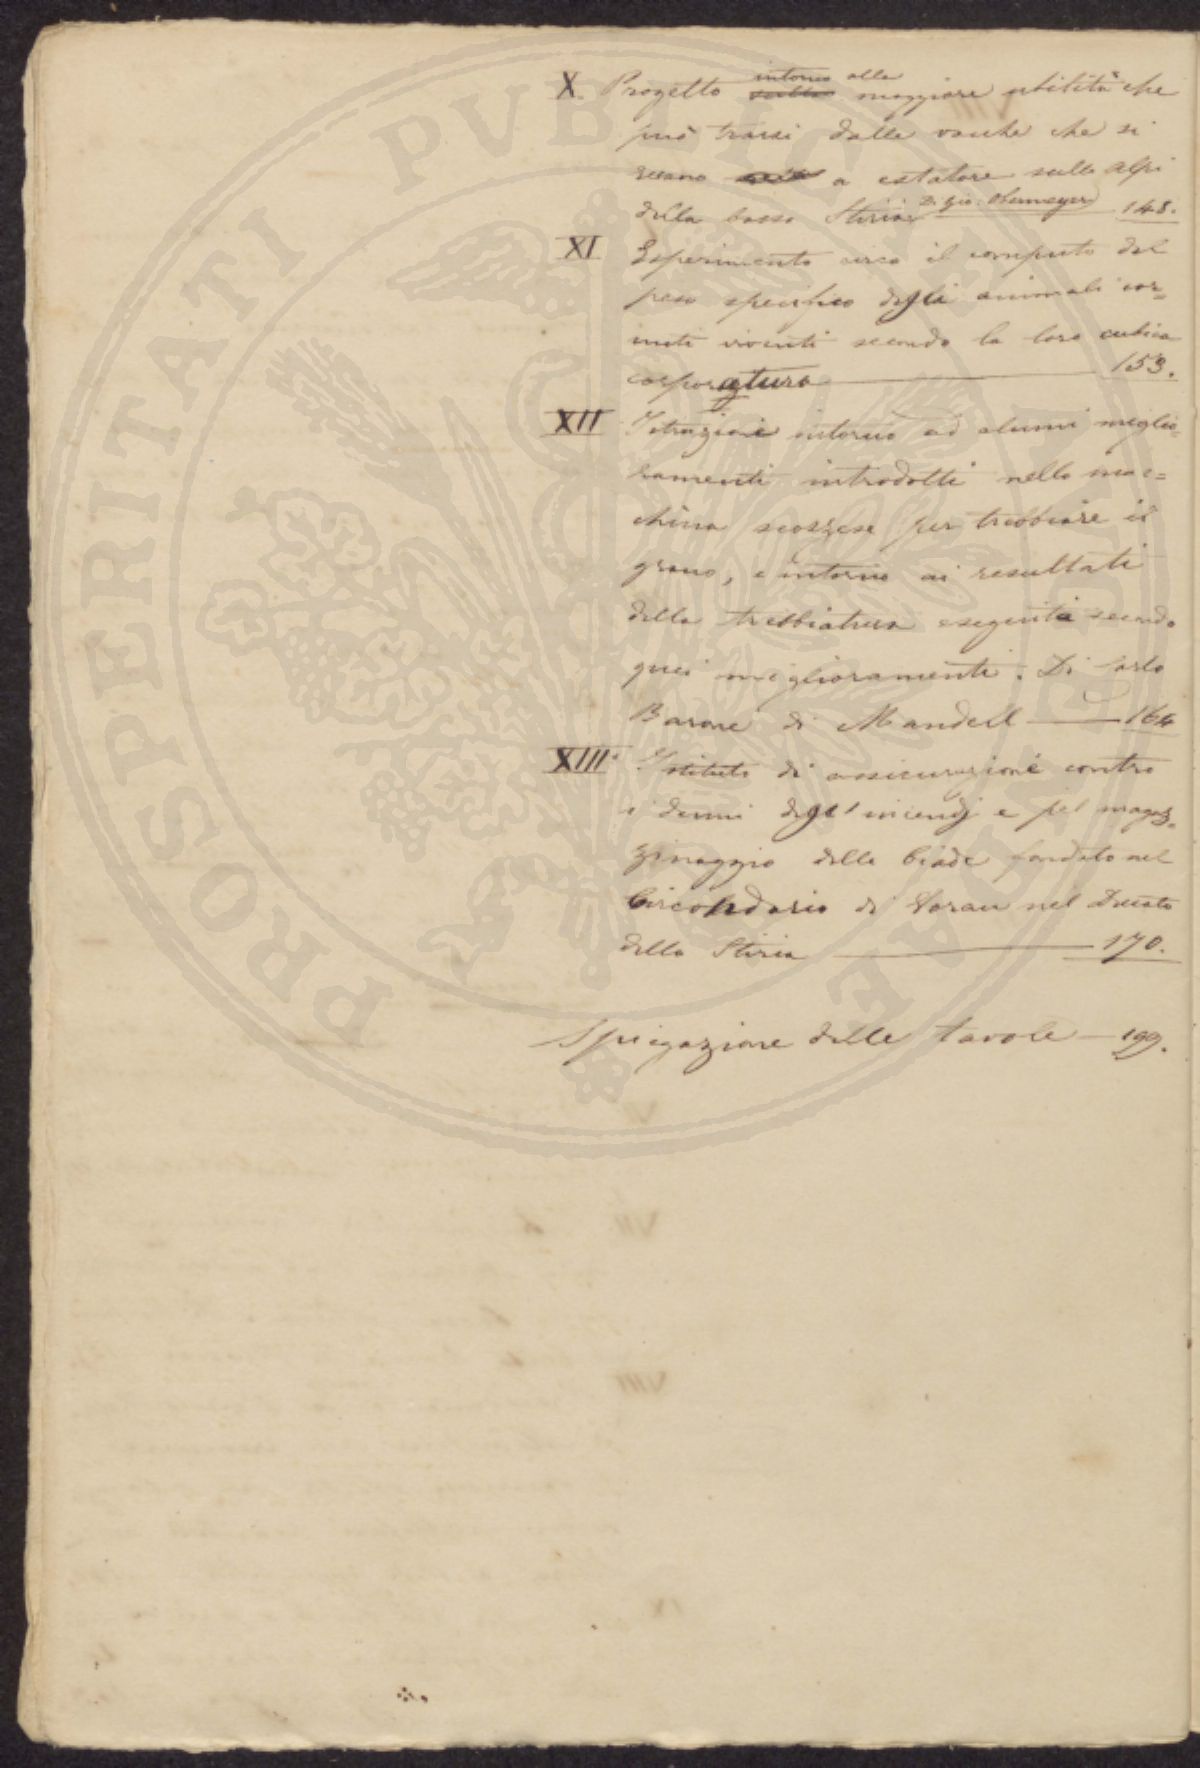 X. Progetto intorno alla maggiore utilità che
può trarsi dalle vacche che si
recano a estatare sulle alpi
della bassa Stiria Di Gio: Obermayer 148.
XI Esperimento circa il computo del
peso specifico degli animali cor=
nuti viventi secondo la loro cubica
corporatura 153.
XII Istruzione intorno ad alcuni miglio=
ramenti introdotti nella mac=
china scozzese per trebbiare il
grano, e intorno ai resultati
della trebbiatura eseguita secondo
quei miglioramenti. Di Carlo
Barone di Mandell 164
XIII Istituto di assicurazione contro
i danni degl'incendj e pel magaz=
zinaggio delle biade fondato nel
Circondario di Vorau nel Ducato
della Stiria 170.
Spiegazione delle tavole — 199.
PROSPERITATI PUBLICAE AUGENDAE